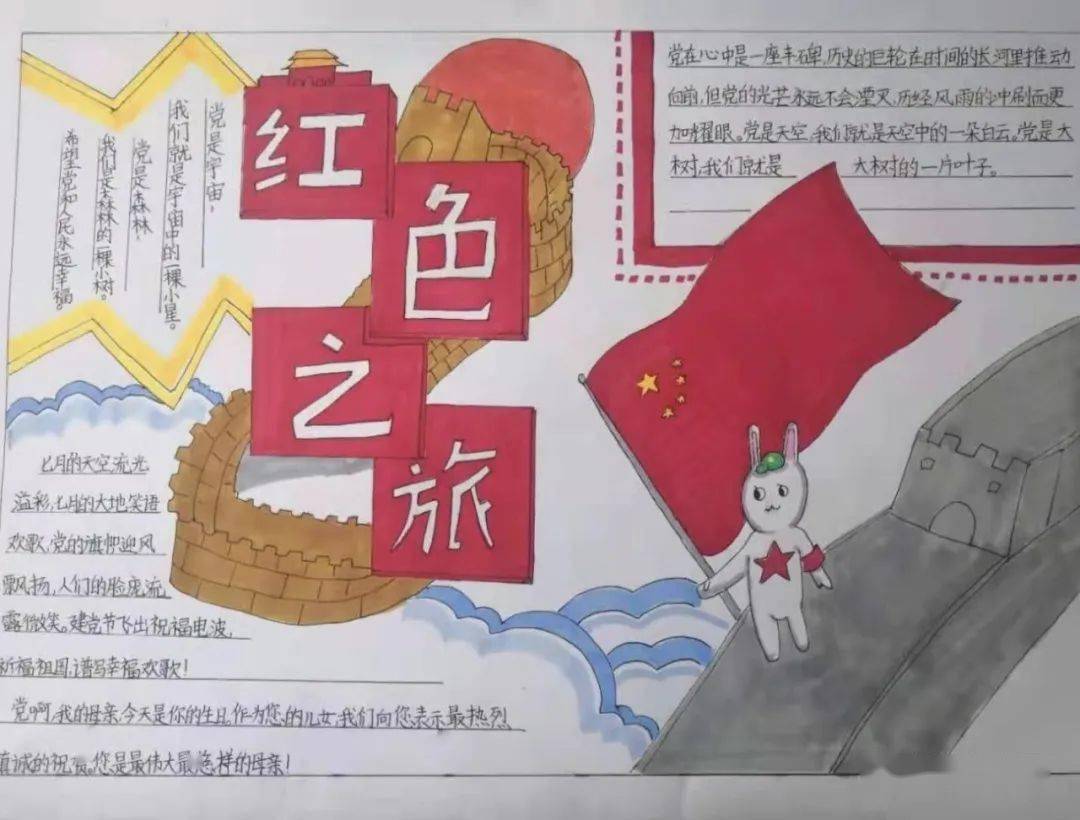 红
色
之
旅
党是宇宙,
我们就是宇宙中的一棵小星。
党是森林,
我们是森林的一棵小树。
希望党和人民永远幸福。
党在心中是一座丰碑,历史的巨轮在时间的长河里推动
向前,但党的光芒永远不会湮灭,历经风雨的冲刷而更
加耀眼。党是天空,我们就是天空中的一朵白云。党是大
树,我们就是 大树的一片叶子。
七月的天空流光
溢彩,七月的大地笑语
欢歌,党的旗帜迎风
飘扬,人们的脸庞流
露微笑。建党节飞出祝福电波,
祈福祖国,谱写幸福欢歌!
党啊,我的母亲,今天是你的生日,作为您的儿女,我们向您表示最热烈
真诚的祝贺。您是最伟大最慈祥的母亲!